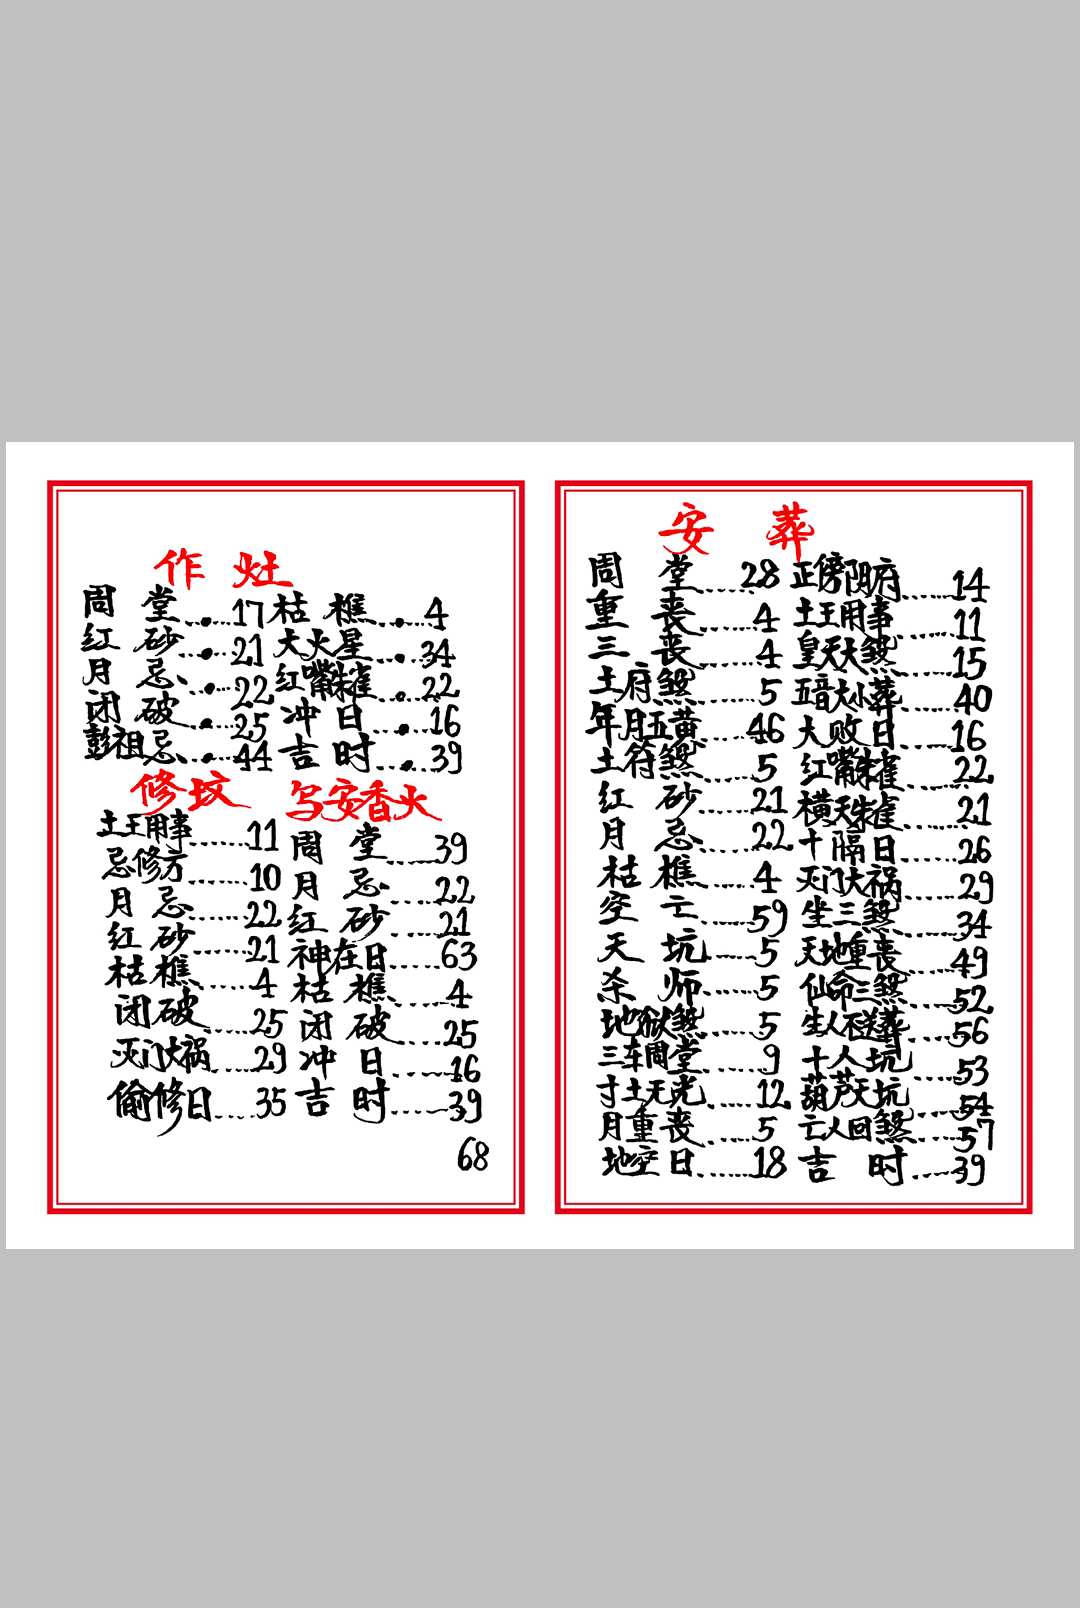 作灶
周堂......17 枯樵......4
红砂......21 大火星......34
月忌......22 红嘴朱雀......22
闭破......25 冲日......16
彭祖忌......44 吉时......39
修坟
土王用事......11
忌修方......10
月忌......22
红砂......21
枯樵......4
闭破......25
灭门大祸......29
偷修日......35
写安香火
周堂......39
月忌......22
红砂......21
神在日......63
枯樵......4
闭破......25
冲日......16
吉时......39
68
安葬
周堂......28 正傍阴府......14
重丧......4 土王用事......11
三丧......4 皇天大煞......15
土府煞......5 五音大小葬......40
年月五黄......46 大败日......16
土符煞......5 红嘴朱雀......22
红砂......21 横天朱雀......21
月忌......22 十隔日......26
枯樵......4 灭门大祸......29
空亡......59 坐三煞......34
天坑......5 天地重丧......49
杀师......5 仙命三煞......52
地狱煞......5 生人不送葬......56
三车周堂......9 十人坑......53
寸土无光......12 葫芦天坑......54
月重丧......5 亡人回煞......57
地空日......18 吉时......39